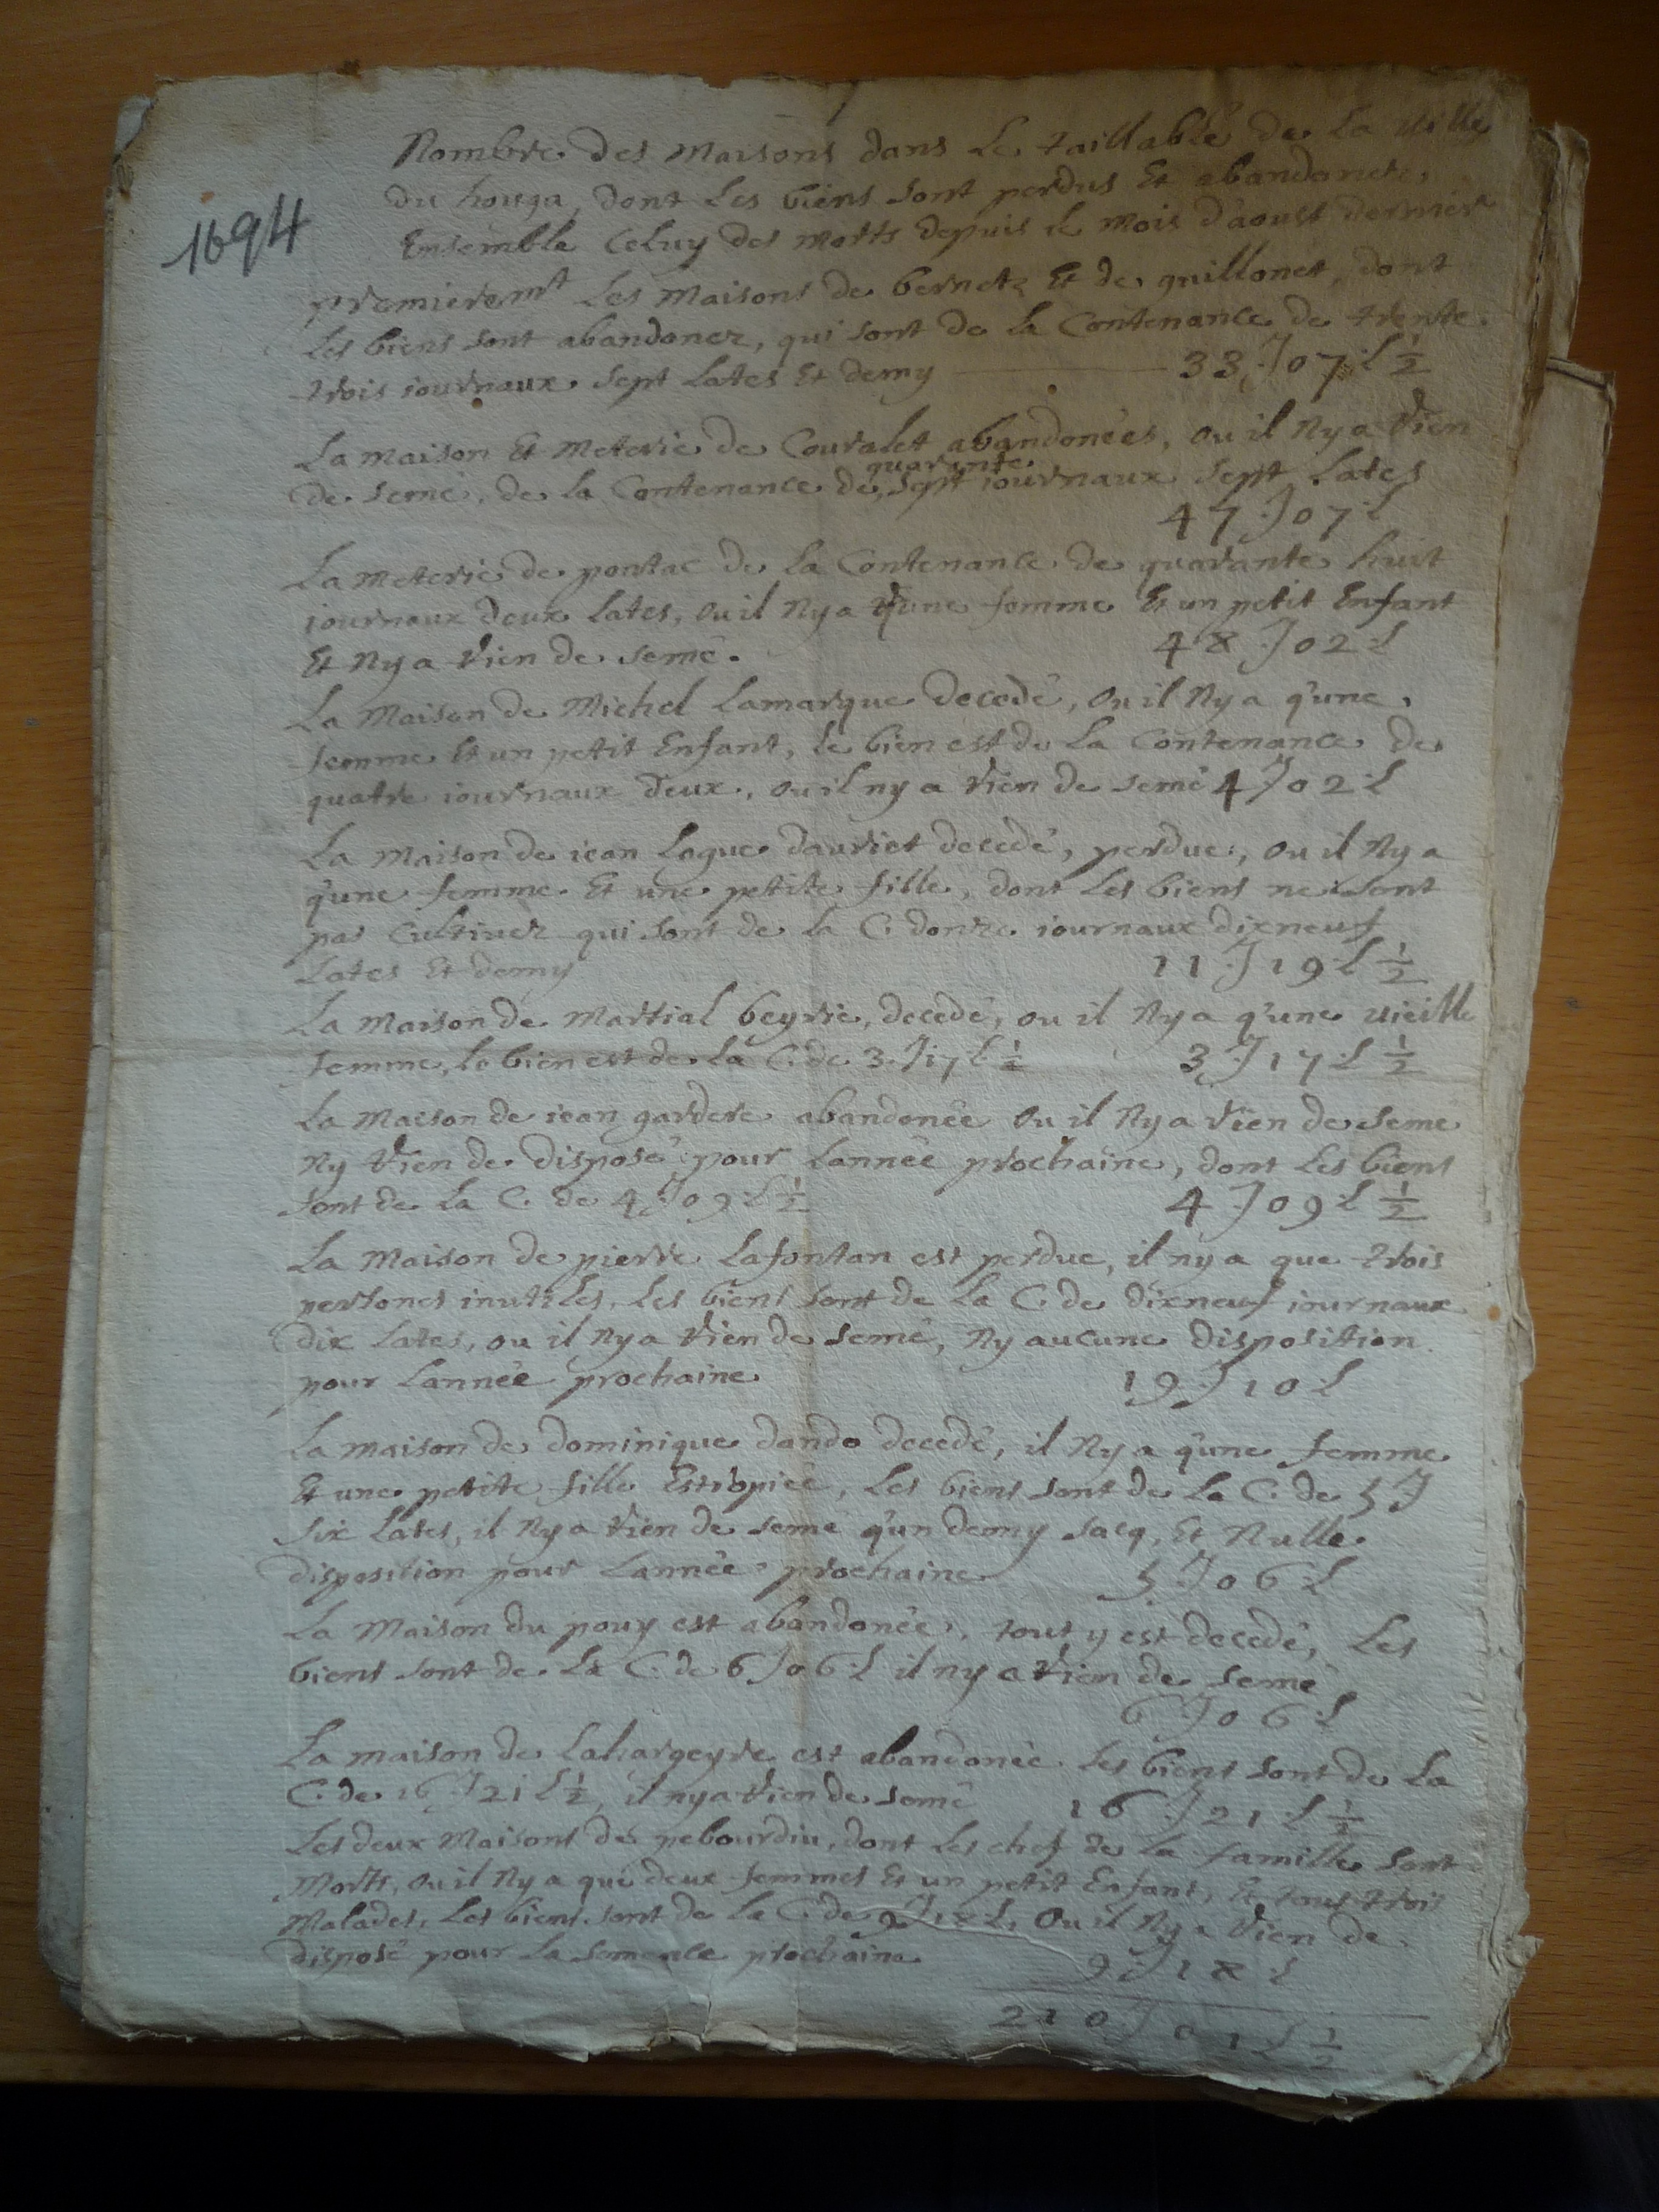 Nombre des Maisons dans Le taillable de La ville
du houga, dont Les biens sont perdus Et abandonés,
Ensemble Celuy des morts depuis le mois d'aoust dernier
1694
premieremt Les Maisons de bernets Et de guillonet, dont
Les biens sont abandonez, qui sont de la Contenance de trente
trois journaux sept Lates Et demy 33 J 07 L ½
La maison Et Meterie de Couralet abandonées, ou il Ny a Rien
quarante
de semé, de la Contenance de, sept journaux sept Lates
47 J 07 L
La meterie de pontac de La Contenance de quarante huit
journaux deux lates, ou il Ny a q'une femme Et un petit Enfant
Et Ny a Rien de semé. 48 J 02 L
La Maison de Michel Lamarque decedé, ou il Ny a q'une
femme Et un petit Enfant, le bien est de La Contenance de
quatre journaux deux, ou il ny a Rien de semé 4 J 02 L
La maison de jean Lague dauriet decedé, perdue, ou il Ny a
q'une femme Et une petite fille, dont Les biens ne sont
pas Cultivez qui sont de la C. donze journaux dixneuf
Lates Et demy 11 J 19 L ½
La maison de Martial beyrie, decedé, ou il Ny a q'une vieille
femme, le bien est de la C. de 3 J 17 L ½ 3 J 17 L ½
La maison de jean gardere abandonée ou il Ny a Rien de semé
Ny Rien de disposé pour Lannée prochaine, dont Les biens
sont de La C. de 4 J 09 L ½ 4 J 09 L ½
La Maison de pierre Lafontan est perdue, il ny a que trois
persones inutiles, Les biens sont de La C. de dixneuf journaux
dix Lates, ou il Ny a Rien de semé, Ny aucune disposition
pour Lannée prochaine 19 J 10 L
La maison de dominique dando decedé, il Ny a q'une femme
Et une petite fille Estropiée, Les biens sont de La C. de 5 J
six Lates, il Ny a Rien de semé q'un demy sacq, Et Nulle
disposition pour Lannée prochaine 5 J 06 L
La Maison du pouy est abandonée, tout y est decedé, Les
biens sont de La C. de 6 J 06 L il ny a Rien de semé
6 J 06 L
La maison de Lahargeyre est abandonée Les biens sont de La
C. de 16 J 21 L ½, il ny a Rien de semé 16 J 21 L ½
Les deux Maisons de pebourdiu, dont Les chef de La famille sont
Morts, ou il Ny a que deux femmes Et un petit Enfant, Et tous trois
Malades, Les biens sont de La C. de 9 J 18 L, ou il Ny a Rien de
disposé pour La semence prochaine 9 J 18 L
210 J 01 L ½